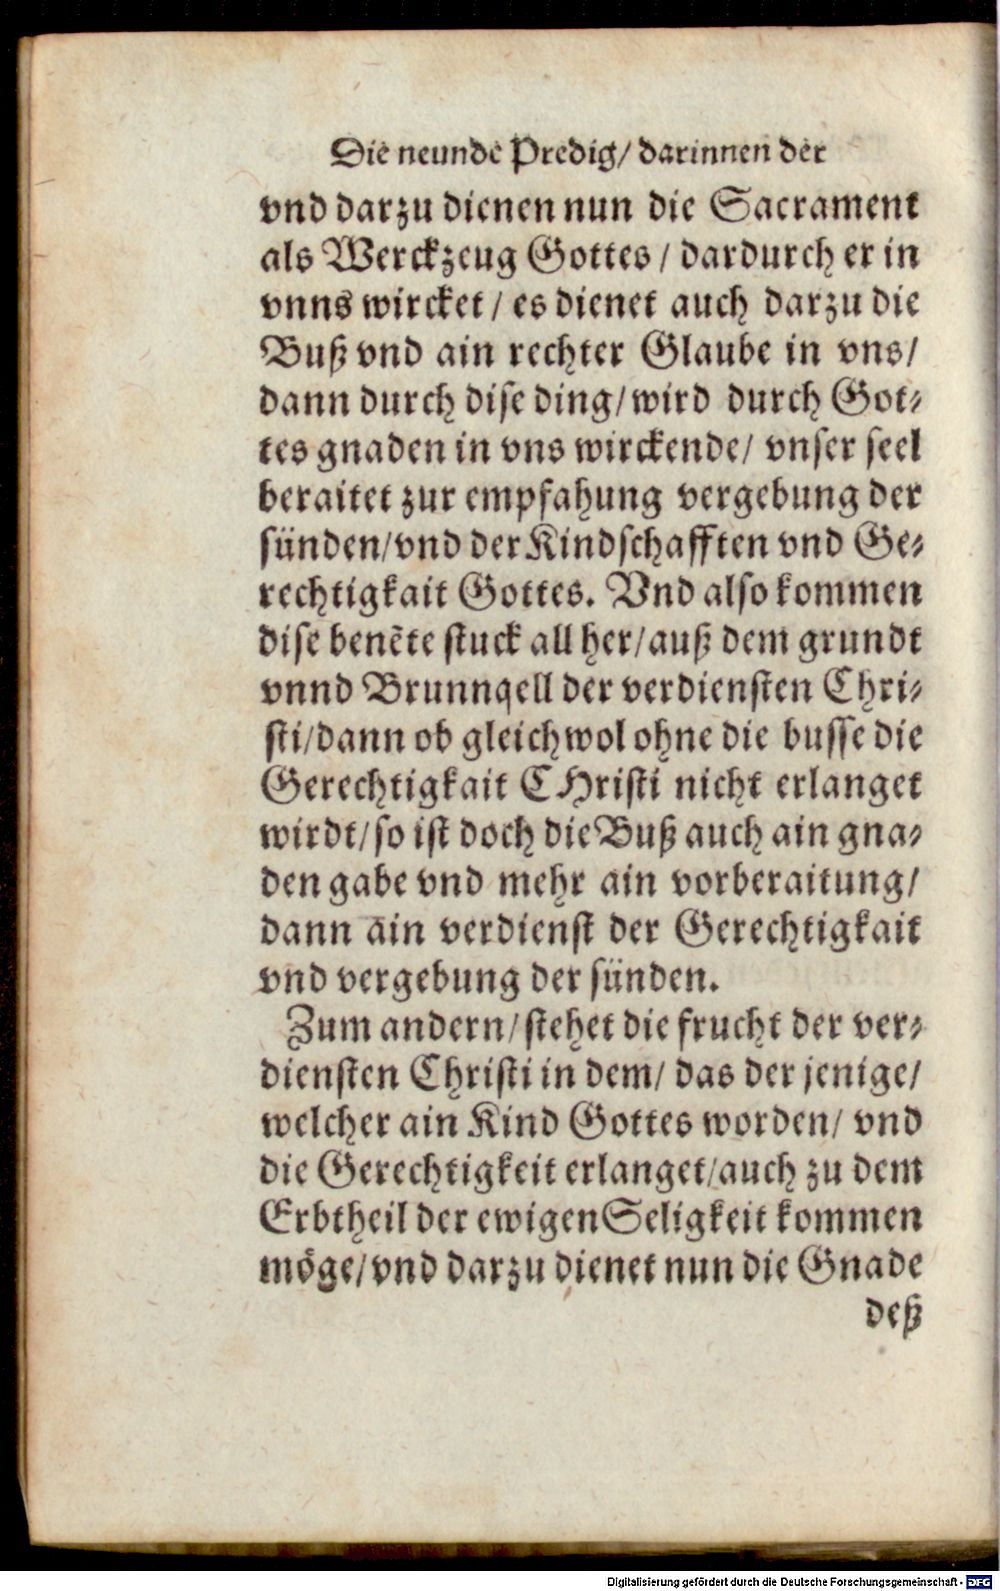 Die neunde Predig/ darinnen der
vnd darzu dienen nun die Sacrament
als Werckzeug Gottes / dardurch er in
vnns wircket / es dienet auch darzu die
Buß vnd ain rechter Glaube in vns/
dann durch dise ding/ wird durch Got⸗
tes gnaden in vns wirckende/ vnser seel
beraitet zur empfahung vergebung der
sünden/vnd der Kindschafften vnd Ge⸗
rechtigkait Gottes. Vnd also kommen
dise benẽte stuck all her/auß dem grundt
vnnd Brunnqell der verdiensten Chri⸗
sti/dann ob gleichwol ohne die busse die
Gerechtigkait CHristi nicht erlanget
wirdt/so ist doch die Buß auch ain gna⸗
den gabe vnd mehr ain vorberaitung/
dann ain verdienst der Gerechtigkait
vnd vergebung der sünden.
Zum andern/stehet die frucht der ver⸗
diensten Christi in dem/ das der jenige/
welcher ain Kind Gottes worden/ vnd
die Gerechtigkeit erlanget/auch zu dem
Erbtheil der ewigen Seligkeit kommen
möge/vnd darzu dienet nun die Gnade
deß
Digitalisierung gefördert durch die Deutsche Forschungsgemeinschaft - DFG